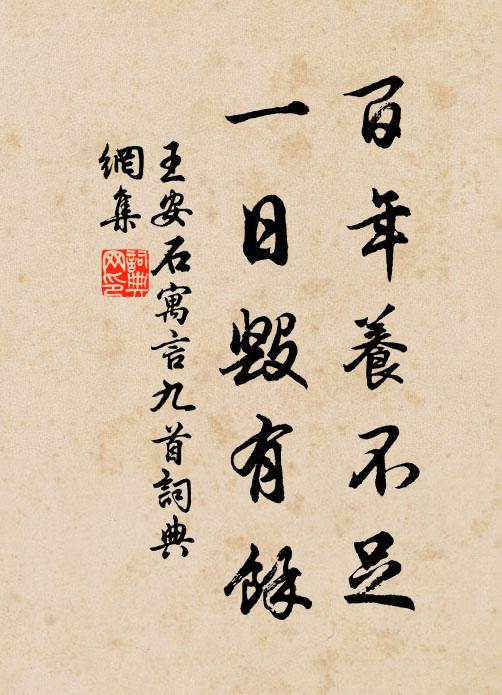 百年養不足
一日毀有餘
王安石寓言九首詞典
網集
詞典
网印